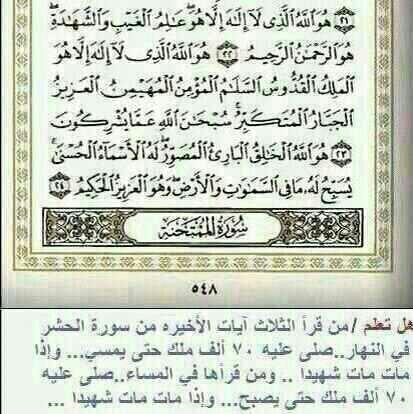 ٢١ هُوَ ٱللَّهُ ٱلَّذِى لَآ إِلَٰهَ إِلَّا هُوَ عَٰلِمُ ٱلْغَيْبِ وَٱلشَّهَٰدَةِ
هُوَ ٱلرَّحْمَٰنُ ٱلرَّحِيمُ ٢٢ هُوَ ٱللَّهُ ٱلَّذِى لَآ إِلَٰهَ إِلَّا هُوَ
ٱلْمَلِكُ ٱلْقُدُّوسُ ٱلسَّلَٰمُ ٱلْمُؤْمِنُ ٱلْمُهَيْمِنُ ٱلْعَزِيزُ
ٱلْجَبَّارُ ٱلْمُتَكَبِّرُ سُبْحَٰنَ ٱللَّهِ عَمَّا يُشْرِكُونَ
٢٣ هُوَ ٱللَّهُ ٱلْخَٰلِقُ ٱلْبَارِئُ ٱلْمُصَوِّرُ لَهُ ٱلْأَسْمَآءُ ٱلْحُسْنَىٰ
يُسَبِّحُ لَهُۥ مَا فِى ٱلسَّمَٰوَٰتِ وَٱلْأَرْضِ وَهُوَ ٱلْعَزِيزُ ٱلْحَكِيمُ ٢٤
سُورَةُ ٱلْمُمْتَحَنَةِ
٥٤٨
هل تعلم /من قرأ الثلاث آيات الأخيره من سورة الحشر
في النهار..صلى عليه ٧٠ ألف ملك حتى يمسي... وإذا
مات مات شهيدا .. ومن قرأها في المساء..صلى عليه
٧٠ ألف ملك حتى يصبح... وإذا مات مات شهيدا ...